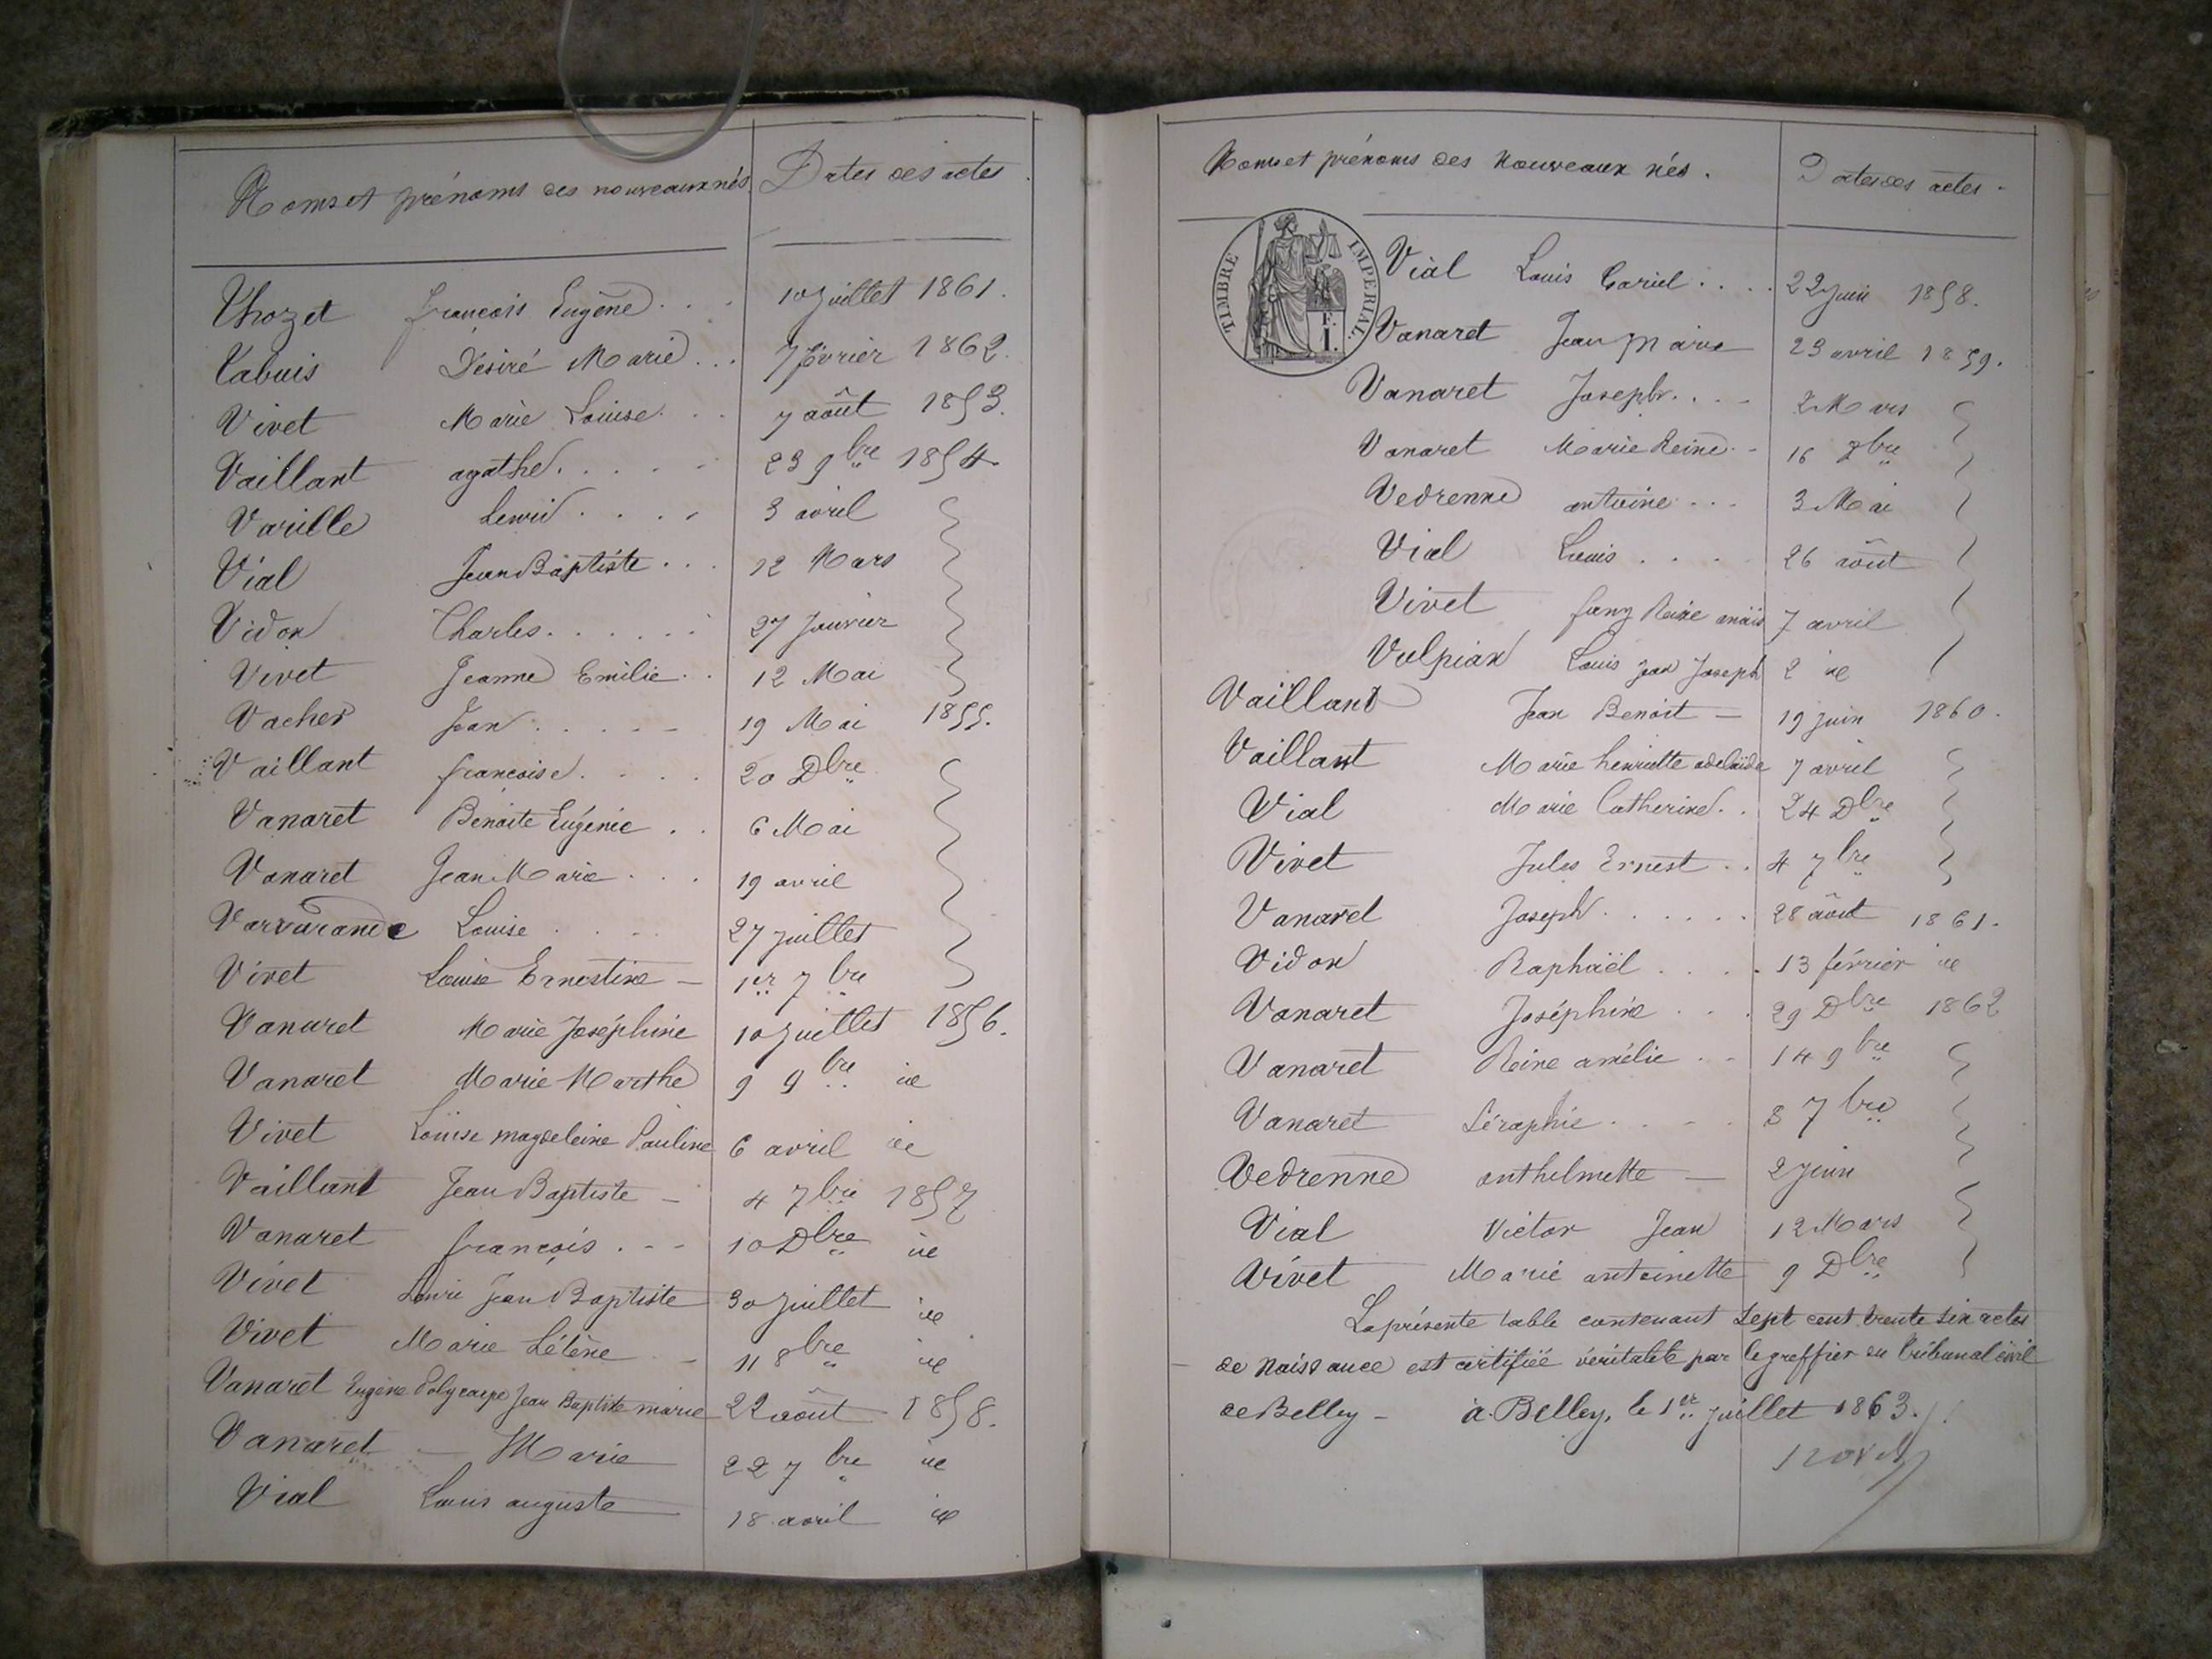 Noms et prénoms des nouveaux nés Dates des actes.
Thozet François Eugène... 10 juillet 1861.
Tabuis Désiré Marie... 7 février 1862.
Vivet Marie Louise... 7 août 1853.
Vaillant agathe..... 23 9bre 1854.
Varille.... 3 avril
Vial Jean Baptiste... 12 Mars
Vidon Charles...... 27 Janvier
Vivet Jeanne Emilie.. 12 Mai
Vacher Jean..... 19 Mai 1855.
Vaillant françoise.... 20 Dbre
Vanaret Benoite Eugénie.. 6 Mai
Vanaret Jean Marie... 19 avril
Varvarande Louise.... 27 juillet
Vivet Louise Ernestine — 1er 7bre
Vanaret Marie Joséphine 10 juillet 1856.
Vanaret Marie Marthe 9 9bre id
Vivet Louise magdeleine Pauline 6 avril id
Vaillant Jean Baptiste — 4 7bre 1857
Vanaret françois.-- 10 Dbre id
Vivet Jean Baptiste 30 juillet id
Vivet Marie — 11 8bre id
Vanaret Eugène Polycarpe Jean Baptiste marie 22 août 1858.
Vanaret — Marie 22 7bre id
Vial Louis auguste 18 avril id
Noms et prénoms des Nouveaux nés. Dates des actes.
TIMBRE IMPERIAL
F.
I.
Vial Louis.... 22 Juin 1858.
Vanaret Jean Marie 23 avril 1859.
Vanaret Joseph.... 2 Mars
Vanaret Marie Reine.. 16 7bre
Vedrenne antoine... 3 Mai
Vial Louis.... 26 août
Vivet fany Reine anaïs 7 avril
Vulpian Louis Jean Joseph 2 id
Vaillant Jean Benoit — 19 juin 1860.
Vaillant Marie henriette adelaïde 7 avril
Vial Marie Catherine.. 24 Dbre
Vivet Jules Ernest.. 4 7bre
Vanaret Joseph...... 28 août 1861.
Vidon Raphaël.... 13 février id
Vanaret Joséphine... 29 Dbre 1862
Vanaret Reine amélie.. 14 9bre
Vanaret Séraphie.... 8 7bre
Vedrenne anthelmette — 2 juin
Vial Victor Jean 12 Mars
Vivet Marie antoinette 9 Dbre
La présente table contenant sept cent trente six actes
de Naissance est certifiée véritable par le greffier du tribunal civil
de Belley — à Belley, le 1er juillet 1863.